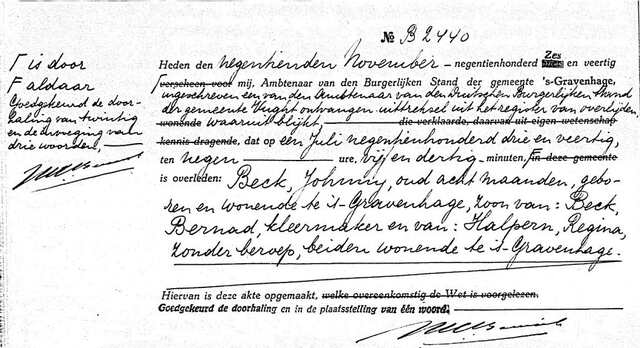 № B 2440
Γ is door
F aldaar
Goedgekeurd de door-
haling van twintig
en de invoeging van
drie woorden,
Heden den negentienden November - negentienhonderd Zes en veertig
verscheen voor mij, Ambtenaar van den Burgerlijken Stand der gemeente 's-Gravenhage,
ingeschreven een van den Ambtenaar van den Duitschen Burgerlijken Stand
der gemeente Vught ontvangen uittreksel uit het register van overlijden,
wonende waaruit blijkt, die verklaarde, daarvan uit eigen wetenschap
kennis dragende, dat op een Juli negentienhonderd drie en veertig,
ten negen ure, vijf en dertig minuten, F in deze gemeente
is overleden: Beck, Johnny, oud acht maanden, gebo-
ren en wonende te 's-Gravenhage, zoon van: Beck,
Bernad, kleermaker en van: Halpern, Regina,
zonder beroep, beiden wonende te 's-Gravenhage.
Hiervan is deze akte opgemaakt, welke overeenkomstig de Wet is voorgelezen.
Goedgekeurd de doorhaling en in de plaatsstelling van één woord.